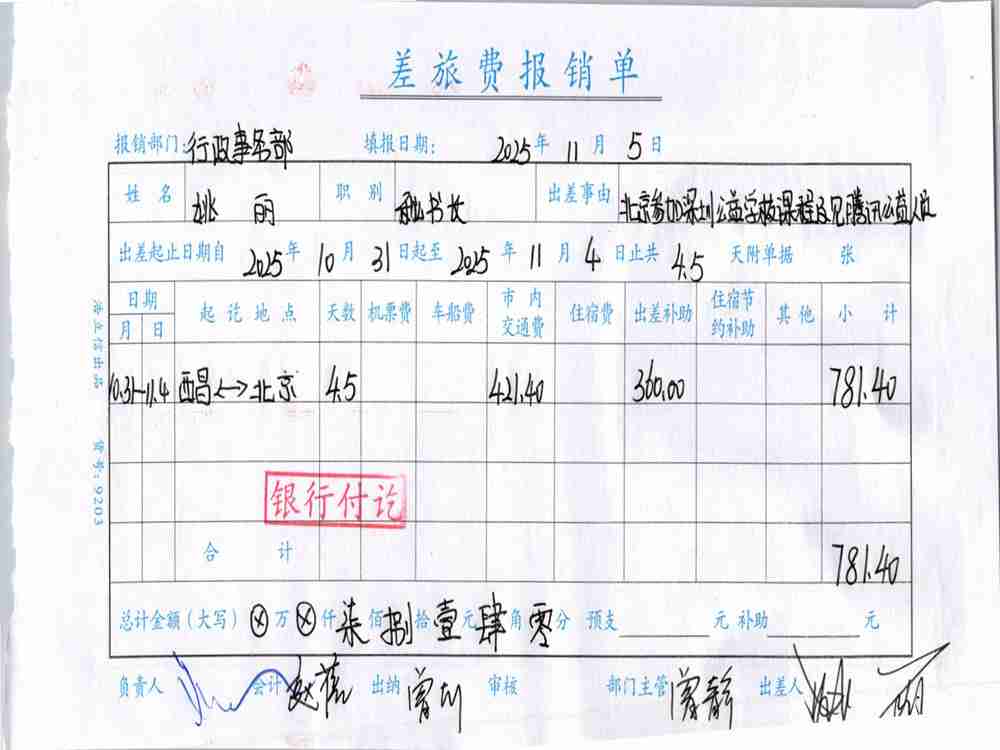 差旅费报销单
报销部门: 行政事务部 填报日期: 2025年 11月 5日
姓名 姚丽 职别 秘书长 出差事由 北京参加深圳公益学校课程及见腾讯公益人员
出差起止日期自 2025年 10月 31日起至 2025年 11月 4日止共 4.5 天附单据 张
日期 起讫地点 天数 机票费 车船费 市内交通费 住宿费 出差补助 住宿节约补助 其他 小计
月 日
10.31-11.4 西昌<->北京 4.5 421.40 360.00 781.40
银行付讫
合计 781.40
总计金额(大写) ⊗万⊗仟柒佰捌拾壹元肆角零分 预支 元 补助 元
负责人 会计 赵蓓 出纳 曾川 审核 部门主管 曾静 出差人 姚丽
立信出品 货号: 9203